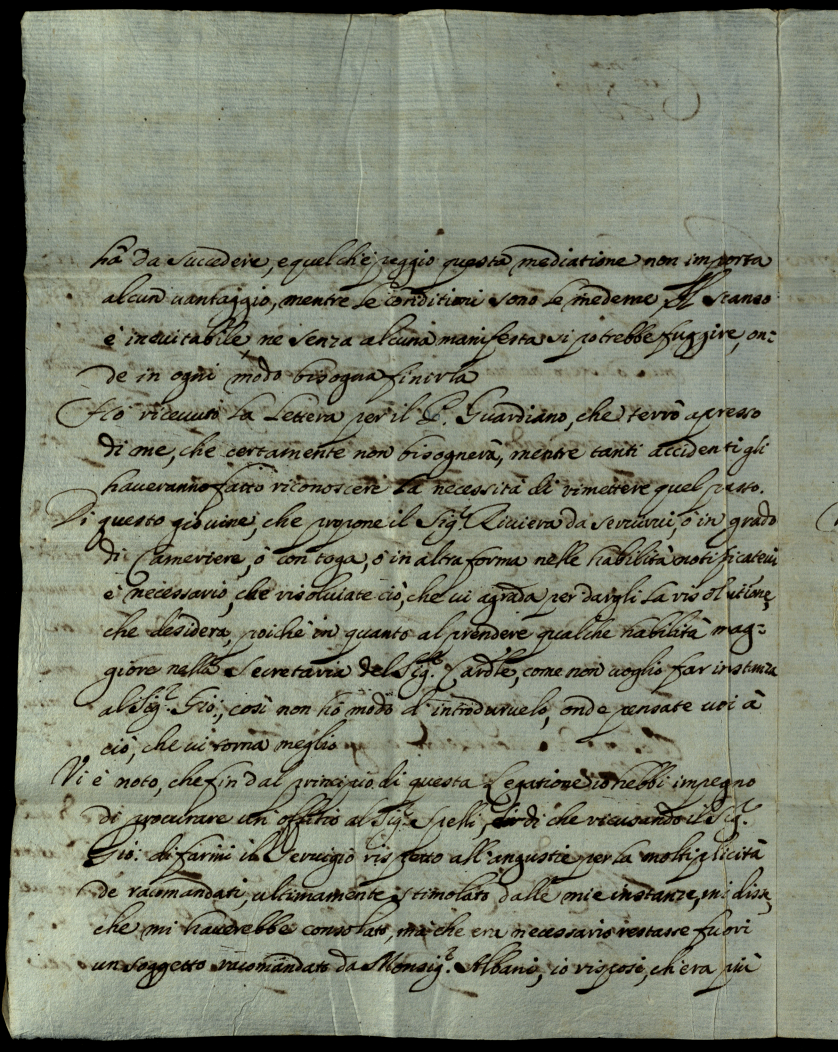 hà da succedere, e quel ch'è peggio questa mediatione non importa
alcun vantaggio, mentre le conditioni sono le medeme
è inevitabile ne senza alcuna manifesta si potrebbe fuggire, on:
de in ogni modo bisogna finirla
Ho ricevuto la lettera per il P. Guardiano, che terrò apresso
di me, che certamente non bisognerà, mentre tanti accidenti gli
haveranno fatto riconoscere la necessità di rimettere quel passo.
Di questo giovine, che propone il Sig.r Riviera da servirvi, ò in grado
di Cameriere, ò con toga, ò in altra forma nelle habilità notificatevi
è necessario, che risolviate ciò, che vi agrada per dargli la risolutione,
che desidera, poiche in quanto al prendere qualche habilità mag:
giore nella Secretaria del Sig.r Cardle, come non voglio far instanza
al Sig.r Gio:, così non hò modo d'introdurvelo, onde pensate voi à
ciò, che vi torna meglio
Vi è noto, che fin dal principio di questa Legatione io hebbi impegno
di procurare un offitio al Sig.r Spelli, di che ricusando il Sig.r
Gio: di farmi il servigio rispetto all'angustie per la moltiplicità
de racomandati, ultimamente stimolato dalle mie instanze, mi disse,
che mi haverebbe consolato, mà che era necessario restasse fuori
un soggetto racomandato da Monsig.r Albani, io risposi, ch'era più